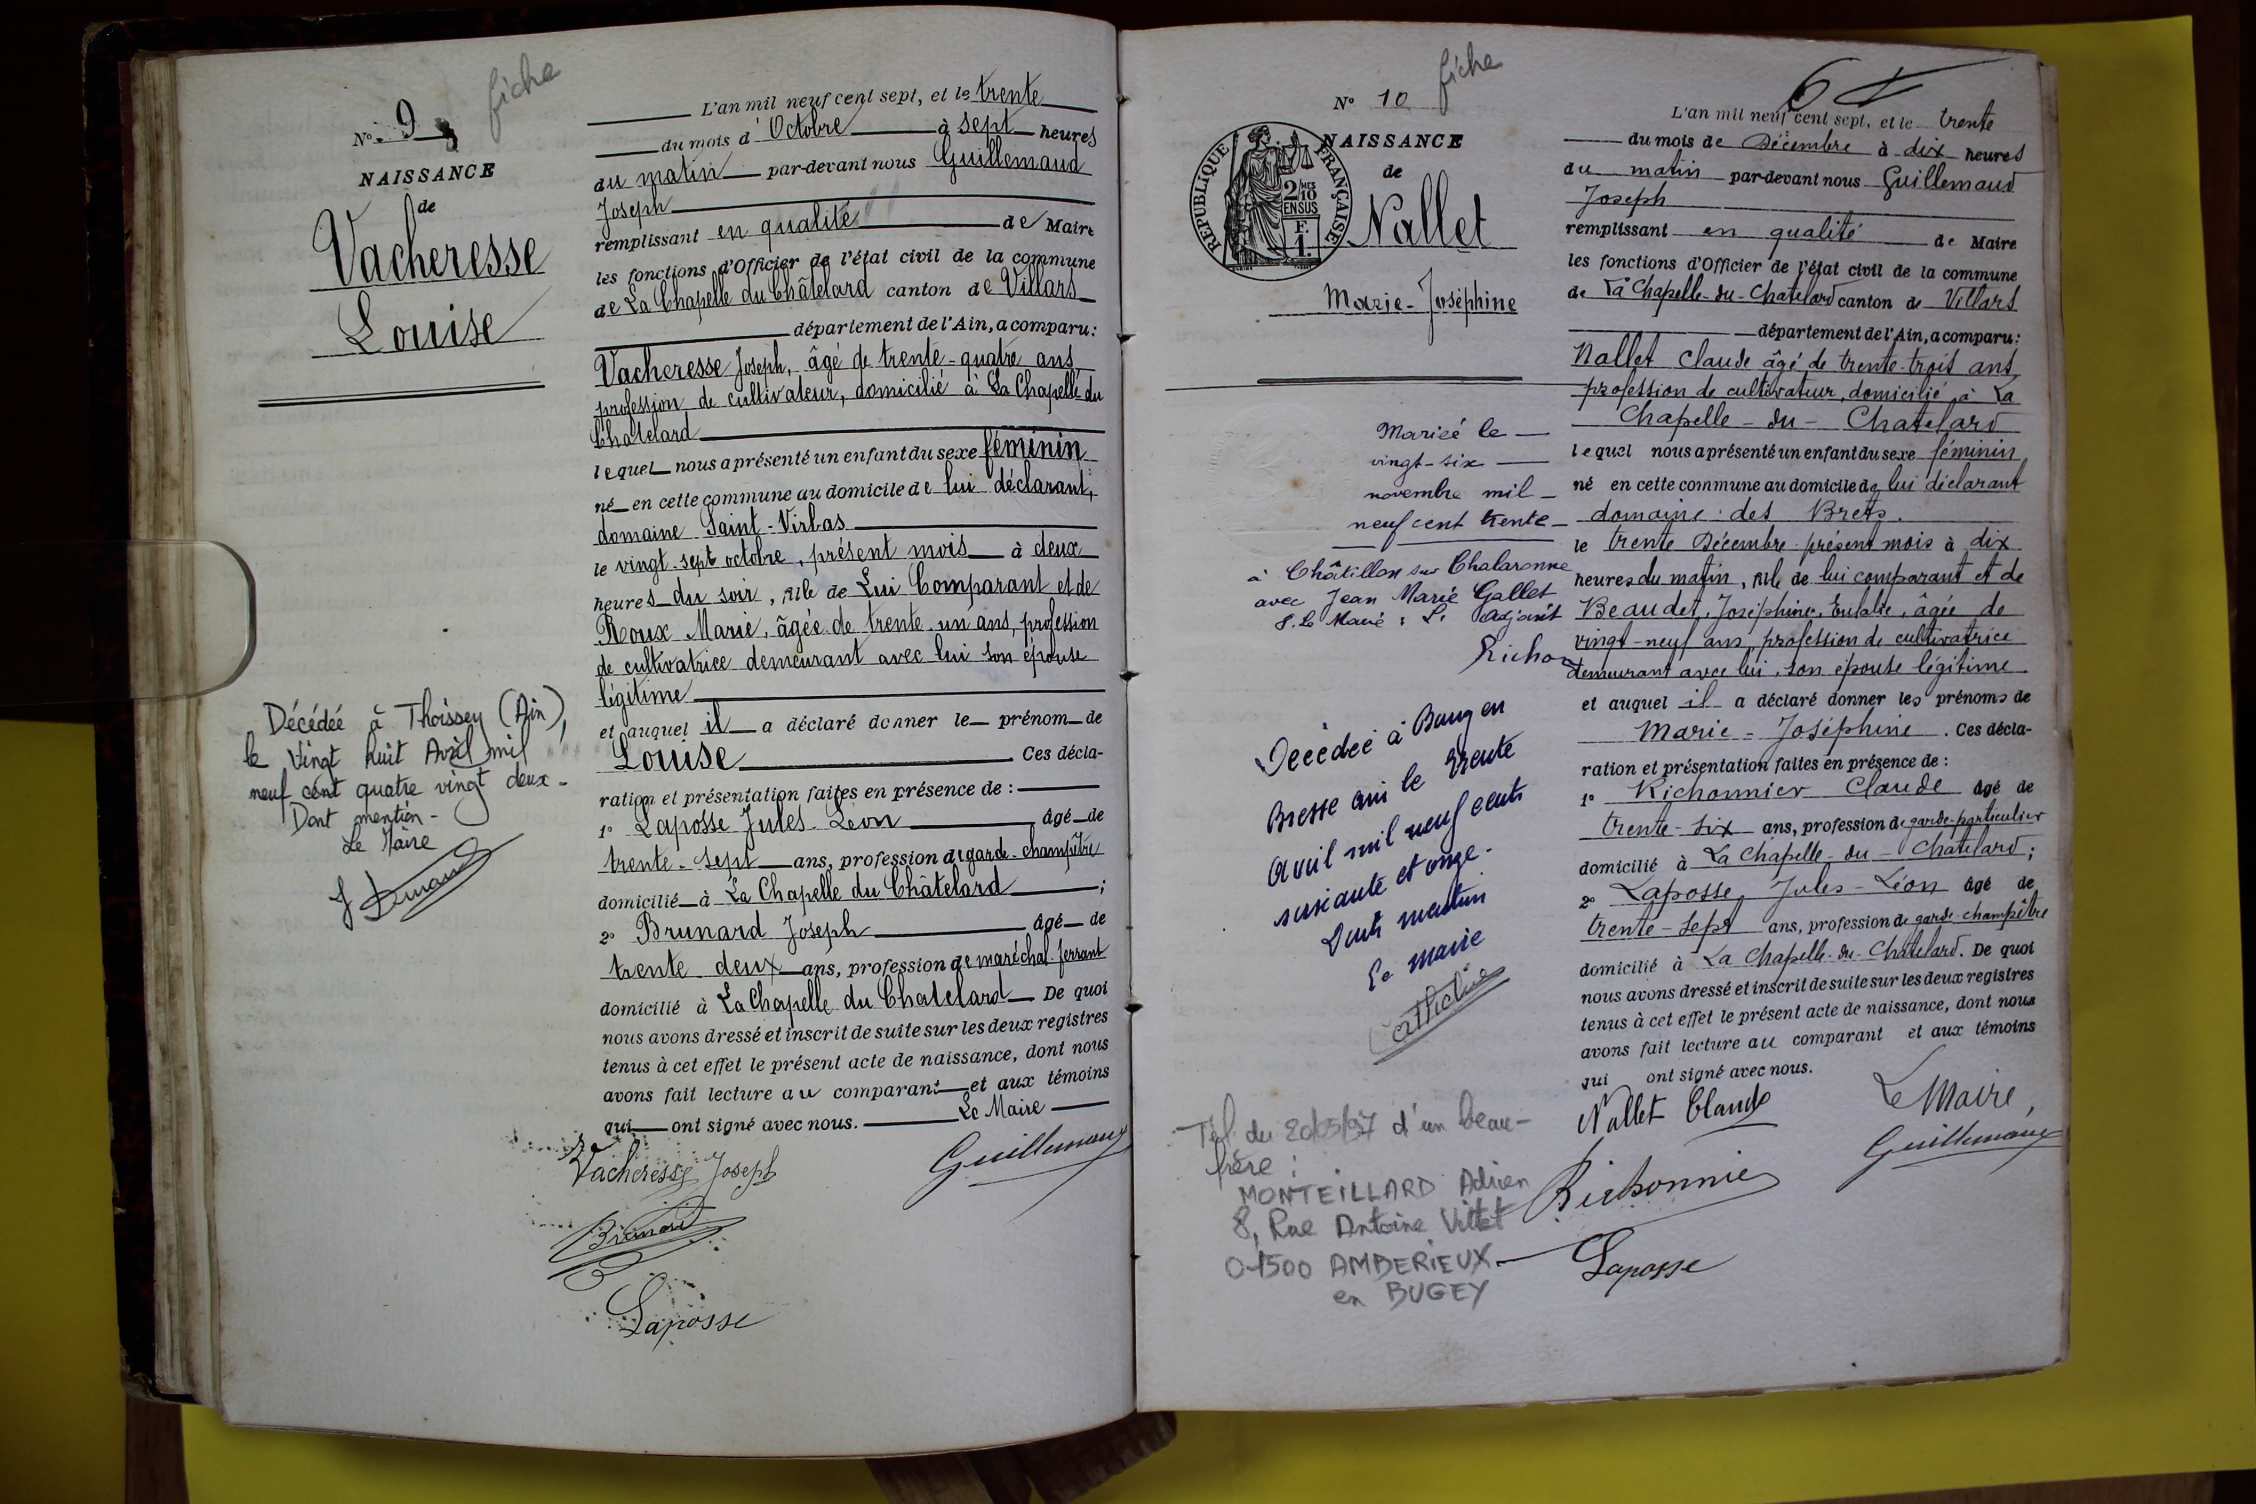 fiche
N° 9
NAISSANCE
de
Vacheresse
Louise
Décédée à Thoissey (Ain),
le Vingt huit Avril mil
neuf cent quatre vingt deux -
Dont mention -
Le Maire
L'an mil neuf cent sept, et le trente
du mois d'Octobre à sept heures
du matin par-devant nous Guillemaud
Joseph
remplissant en qualité de Maire
les fonctions d'Officier de l'état civil de la commune
de La Chapelle du Châtelard canton de Villars
département de l'Ain, a comparu:
Vacheresse Joseph, âgé de trente-quatre ans
profession de cultivateur, domicilié à La Chapelle du
Chatelard
lequel nous a présenté un enfant du sexe féminin
né en cette commune au domicile de lui déclarant,
domaine Saint-Virbas
le vingt-sept octobre, présent mois à deux
heures du soir, fille de Lui Comparant et de
Roux Marie, âgée de trente-un ans, profession
de cultivatrice demeurant avec lui son épouse
légitime
et auquel il a déclaré donner le prénom de
Louise Ces décla-
ration et présentation faites en présence de :
1° Laposse Jules-Léon âgé de
trente-sept ans, profession de garde-champêtre
domicilié à La Chapelle du Châtelard ;
2° Brunard Joseph âgé de
trente deux ans, profession de maréchal-ferrant
domicilié à La Chapelle du Chatelard De quoi
nous avons dressé et inscrit de suite sur les deux registres
tenus à cet effet le présent acte de naissance, dont nous
avons fait lecture au comparant et aux témoins
qui ont signé avec nous. Le Maire
Vacheresse Joseph
Guillemaud
Brunard
Laposse
fiche
N° 10
NAISSANCE
de
RÉPUBLIQUE FRANÇAISE
2 MES
10
EN SUS
F.
1.
Nallet
Marie-Joséphine
Mariée le
vingt-six
novembre mil
neuf cent trente
à Châtillon sur Chalaronne
avec Jean Marie Gallet
P. Le Maire : L' Adjoint
Richon
Décédée à Baugen
Bresse ain le trente
Avril mil neuf cent
soixante et onze.
Dont mention
Le maire
Tél. du 20/05/97 d'un beau-
frère :
MONTEILLARD Adrien
8, Rue Antoine Vittet
01500 AMBERIEUX
en BUGEY
L'an mil neuf cent sept, et le trente
du mois de Décembre à dix heures
du matin par-devant nous Guillemaud
Joseph
remplissant en qualité de Maire
les fonctions d'Officier de l'état civil de la commune
de La Chapelle-du-Chatelard canton de Villars
département de l'Ain, a comparu:
Nallet Claude âgé de trente-trois ans
profession de cultivateur, domicilié à La
Chapelle-du-Chatelard
lequel nous a présenté un enfant du sexe féminin
né en cette commune au domicile de lui déclarant
domaine des Brets.
le trente Décembre présent mois à dix
heures du matin, fille de lui comparant et de
Beaudet, Joséphine, Eulalie, âgée de
vingt-neuf ans, profession de cultivatrice
demeurant avec lui, son épouse légitime
et auquel il a déclaré donner les prénoms de
Marie-Joséphine. Ces décla-
ration et présentation faites en présence de :
1° Richonnier Claude âgé de
trente-six ans, profession de garde-particulier
domicilié à La Chapelle-du-Chatelard ;
2° Laposse, Jules-Léon âgé de
trente-sept ans, profession de garde-champêtre
domicilié à La Chapelle-du-Chatelard. De quoi
nous avons dressé et inscrit de suite sur les deux registres
tenus à cet effet le présent acte de naissance, dont nous
avons fait lecture au comparant et aux témoins
qui ont signé avec nous.
Nallet Claude
Le Maire,
Guillemaud
Richonnier
Laposse